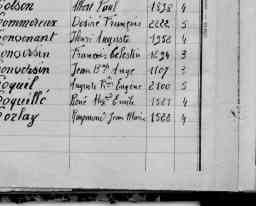 Colson Albert Paul 1838 4
Commereux Désiré François 2222 5
Convenant Henri Auguste 1958 4
Conversin François Celestin 1894 3
Conversin Jean Bte Ange 1107 3
Coquil Auguste Eugène 2100 5
Coquillé René Emile 1581 4
Corlay Raymond Jean Marie 1588 4